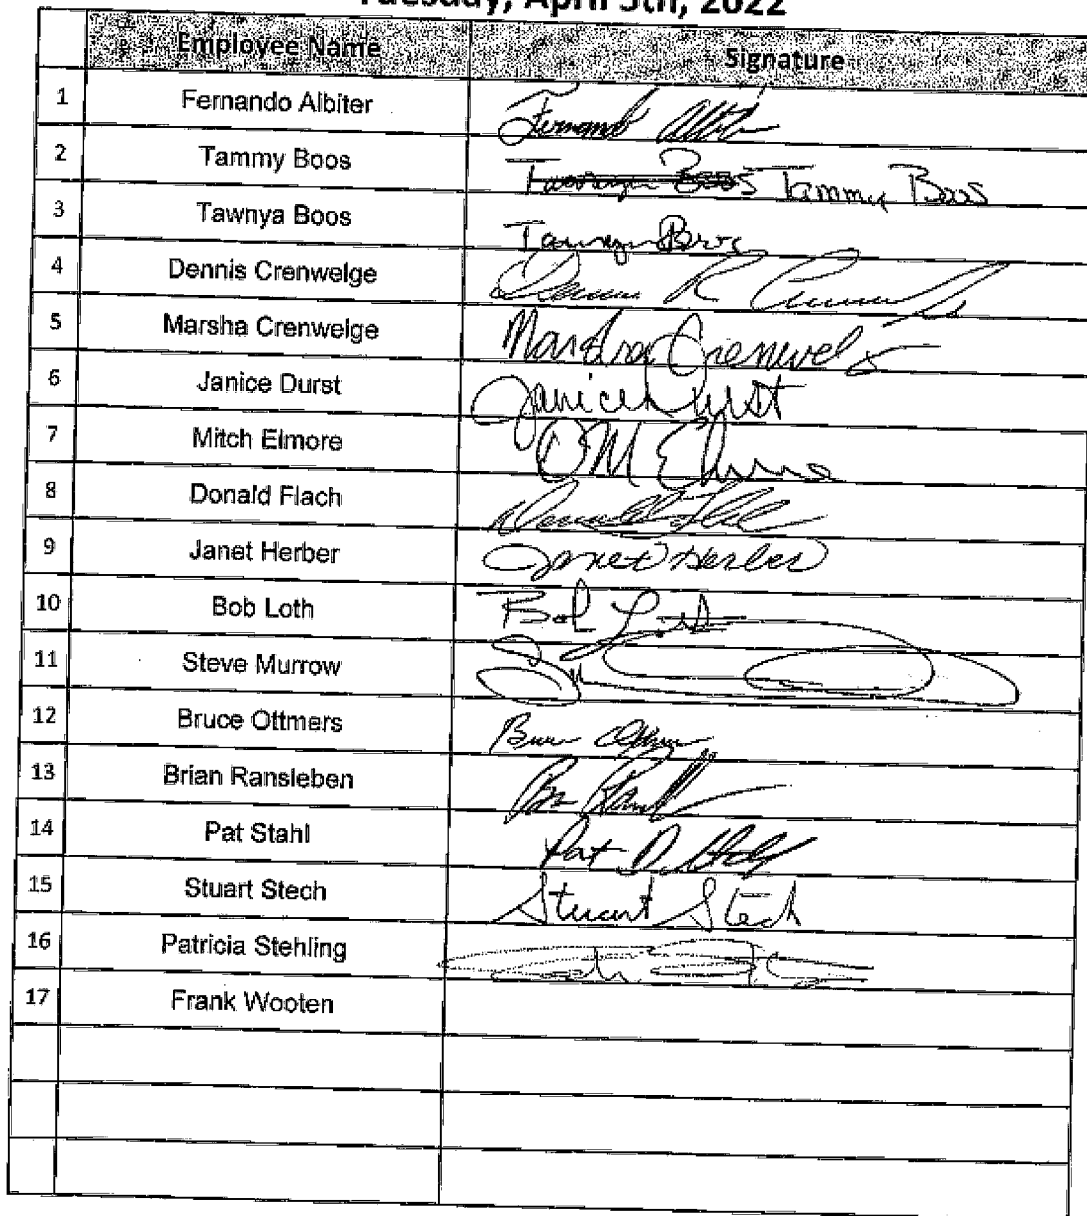 Tuesday, April 5th, 2022
Employee Name Signature
1 Fernando Albiter Fernando Albiter
2 Tammy Boos Tawnya Boos Tammy Boos
3 Tawnya Boos Tawnya Boos
4 Dennis Crenwelge Dennis R Crenwelge
5 Marsha Crenwelge Marsha Crenwelge
6 Janice Durst Janice Durst
7 Mitch Elmore D M Elmore
8 Donald Flach Donald Flach
9 Janet Herber Janet Herber
10 Bob Loth Bob Loth
11 Steve Murrow
12 Bruce Ottmers Bruce Ottmers
13 Brian Ransleben
14 Pat Stahl Pat D. Stahl
15 Stuart Stech Stuart Stech
16 Patricia Stehling
17 Frank Wooten